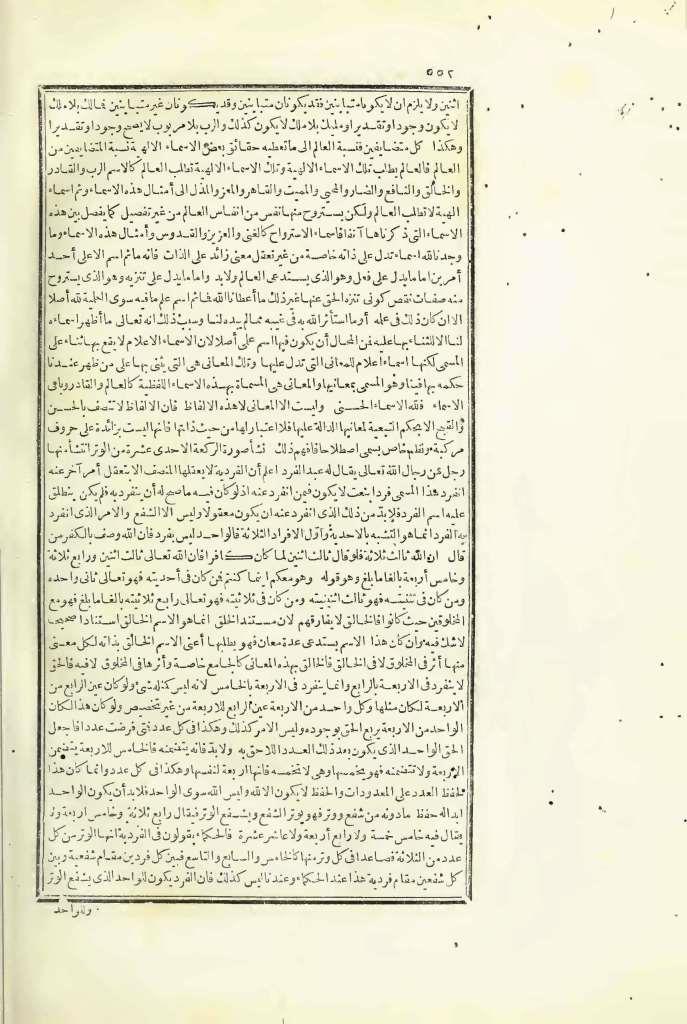 ٥٥٢
اثنين ولا يلزم ان لا يكونا متباينين فقد يكونان متباينين وقد يكونان غير متباينين فمالك بلا ملك
لا يكون وجودا وتقديرا وملك بلا ملك لا يكون كذلك والرب بلا مربوب لا يصح وجودا وتقديرا
وهكذا كل متضايفين فنسبة العالم الى ما تعطيه حقائق بعض الاسماء الالهية نسبة المتضايفين من
العالم فالعالم يطلب تلك الاسماء الالهية وتلك الاسماء الالهية تطلب العالم كالاسم الرب والقادر
والخالق والنافع والضار والمحيي والمميت والقاهر والمعز والمذل الى أمثال هذه الاسماء وثم اسماء
الهية لا تطلب العالم ولكن يستروح منها نفس من انفاس العالم من غير تفصيل كما يفصل بين هذه
الاسماء التي ذكرناها آنفا فاسماء الاسترواح كالغني والعزيز والقدوس وأمثال هذه الاسماء وما
وجدنا لله اسماء تدل على ذاته خاصة من غير تعقل معنى زائد على الذات فانه ما ثم اسم الا على أحد
أمرين اما ما يدل على فعل وهو الذي يستدعي العالم ولا بد واما ما يدل على تنزيه وهو الذي يستروح
منه صفات نقص كوني تنزه الحق عنها غير ذلك ما أعطانا الله فما ثم اسم علم ما فيه سوى العلمية لله أصلا
الا ان كان ذلك في علمه أو ما استأثر الله به في غيبه مما لم يبده لنا وسبب ذلك انه تعالى ما أظهر اسماءه
لنا الا للثناء بها عليه فمن المحال أن يكون فيها اسم علمي أصلا لان الاسماء الاعلام لا يقع بها ثناء على
المسمى لكنها اسماء اعلام للمعاني التي تدل عليها وتلك المعاني هي التي يثنى بها على من ظهر عندنا
حكمه بها فينا وهو المسمى بمعانيها والمعاني هي المسماة بهذه الاسماء اللفظية كالعالم والقادر وباقي
الاسماء فلله الاسماء الحسنى وليست الا المعاني لا هذه الالفاظ فان الالفاظ لا تتصف بالحسن
والقبح الا بحكم التبعية لمعانيها الدالة عليها فلا اعتبار لها من حيث ذاتها فانها ليست بزائدة على حروف
مركبة ونظم خاص يسمى اصطلاحا فافهم ذلك نشأ صورة الركعة الاحدى عشرة من الوتر انتشأ منها
رجل من رجال الله تعالى يقال له عبد الفرد اعلم أن الفردية لا يعقلها المنصف الا بتعقل أمر آخر عنه
انفرد هذا المسمى فردا بنعت لا يكون فيمن انفرد عنه اذ لو كان فيه ما صح له أن ينفرد به فلم يكن ينطلق
عليه اسم الفرد فلا بد من ذلك الذي انفرد عنه ان يكون معقولا وليس الا الشفع والامر الذي انفرد
به الفرد انما هو التشبه بالاحدية وأول الافراد الثلاثة فالواحد ليس بفرد فان الله وصف بالكفر من
قال ان الله ثالث ثلاثة فلو قال ثالث اثنين لما كان كافرا فان الله تعالى ثالث اثنين ورابع ثلاثة
وخامس أربعة بالغا ما بلغ وهو قوله وهو معكم اينما كنتم فمن كان في أحديته فهو تعالى ثاني واحده
ومن كان في تثنيته فهو ثالث اثنينيته ومن كان في ثلاثيته فهو تعالى رابع ثلاثيته بالغا ما بلغ فهو مع
المخلوقين حيث كانوا فالخالق لا يفارقهم لان مستند الخلق انما هو الاسم الخالق استنادا صحيحا
لا شك فيه وان كان هذا الاسم يستدعي عدة معان فهو يطلبها أعني الاسم الخالق بذاته لكل معنى
منها أثر في المخلوق لا في الخالق فالخالق بهذه المعاني كالجامع خاصة وأثرها في المخلوق لا فيه فالحق
لا ينفرد في الاربعة بالرابع وانما ينفرد في الاربعة بالخامس لانه ليس كمثله شئ ولو كان عين الرابع من
الاربعة لكان مثلها وكل واحد من الاربعة عين الرابع للاربعة من غير تخصيص ولو كان هذا لكان
الواحد من الاربعة يربع الحق بوجوده وليس الامر كذلك وهكذا في كل عدد فمتى فرضت عددا فاجعل
الحق الواحد الذي يكون بعد ذلك العدد اللاحق به ولا بد فانه يتضمنه فالخامس للاربعة يتضمن
الاربعة ولا تتضمنه فهو يخمسها وهي لا تخمسه فانها اربعة لنفسها وهكذا في كل عدد وانما كان هذا
لحفظ العدد على المعدودات والحفظ لا يكون الا لله وليس الله سوى الواحد فلا بد أن يكون الواحد
ابدا له حفظ ما دونه من شفع ووتر فهو يوتر الشفع ويشفع الوتر فيقال رابع ثلاثة وخامس اربعة ولا
يقال فيه خامس خمسة ولا رابع أربعة ولا عاشر عشرة فالحكماء يقولون في الفردية انها الوتر من كل
عدد من الثلاثة فصاعدا في كل وتر منها كالخامس والسابع والتاسع فبين كل فردين مقام شفعية وبين
كل شفعين مقام فردية هذا عند الحكماء وعندنا ليس كذلك فان الفرد يكون للواحد الذي يشفع الوتر
وللواحد